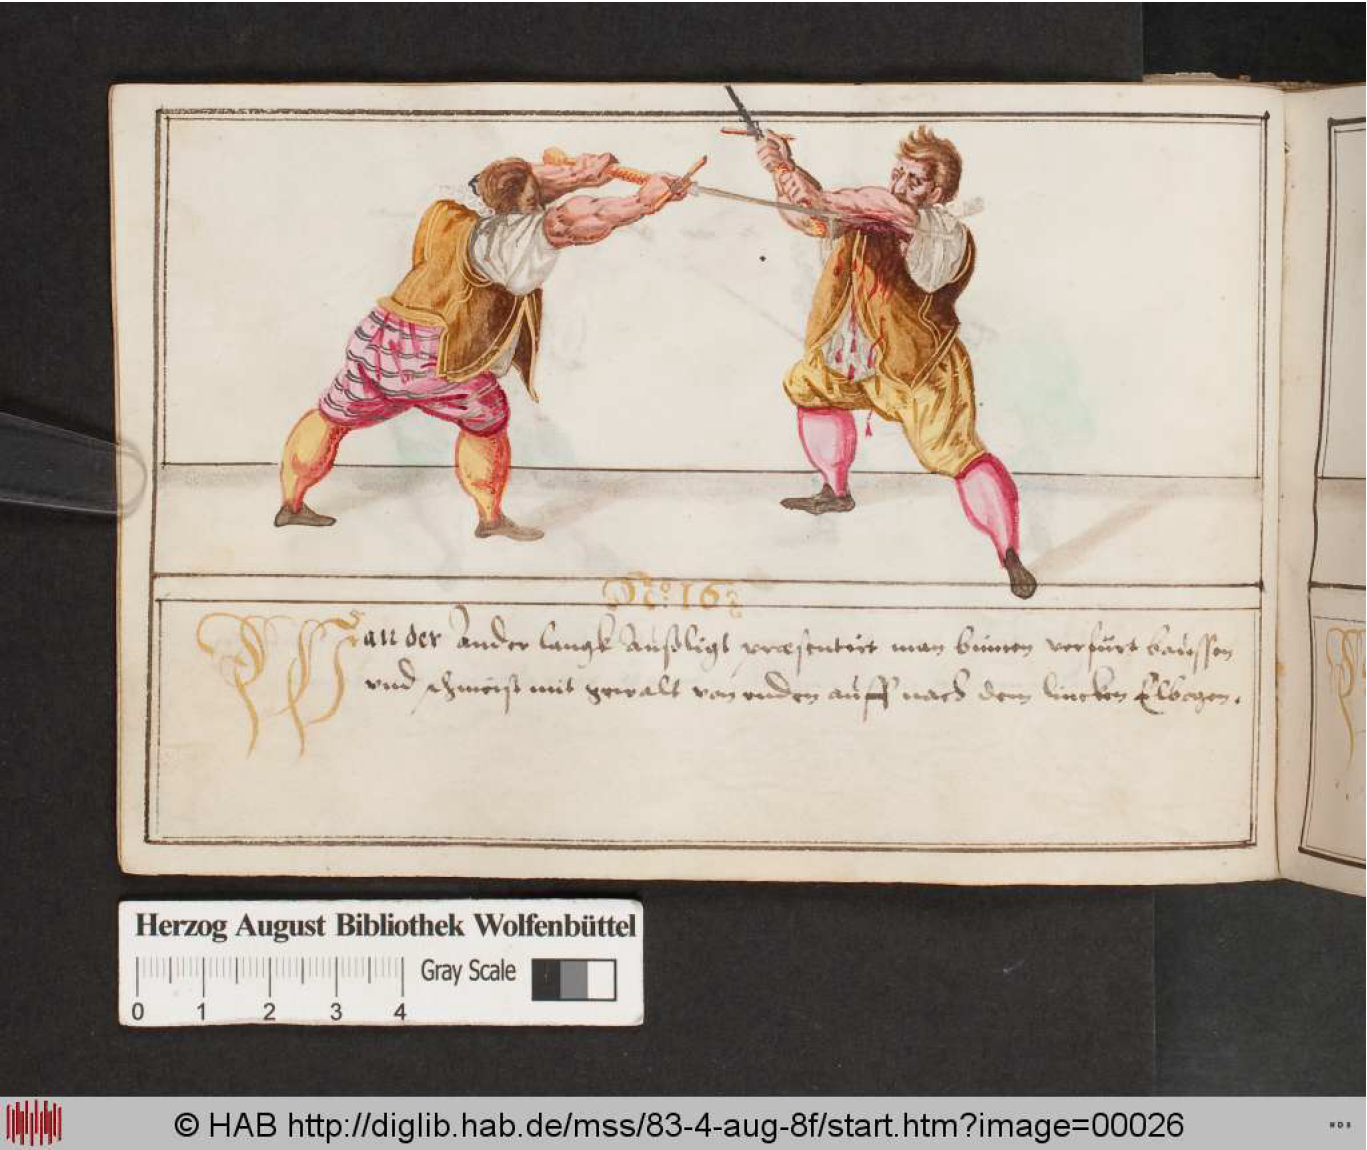 No: 16
Wan der Ander langk außligt præsentirt man binnen verfürt baussen
vnd schmeist mit gewalt von vnden auff nach dem lincken Elbogen.
Herzog August Bibliothek Wolfenbüttel
Gray Scale
0 1 2 3 4
© HAB http://diglib.hab.de/mss/83-4-aug-8f/start.htm?image=00026